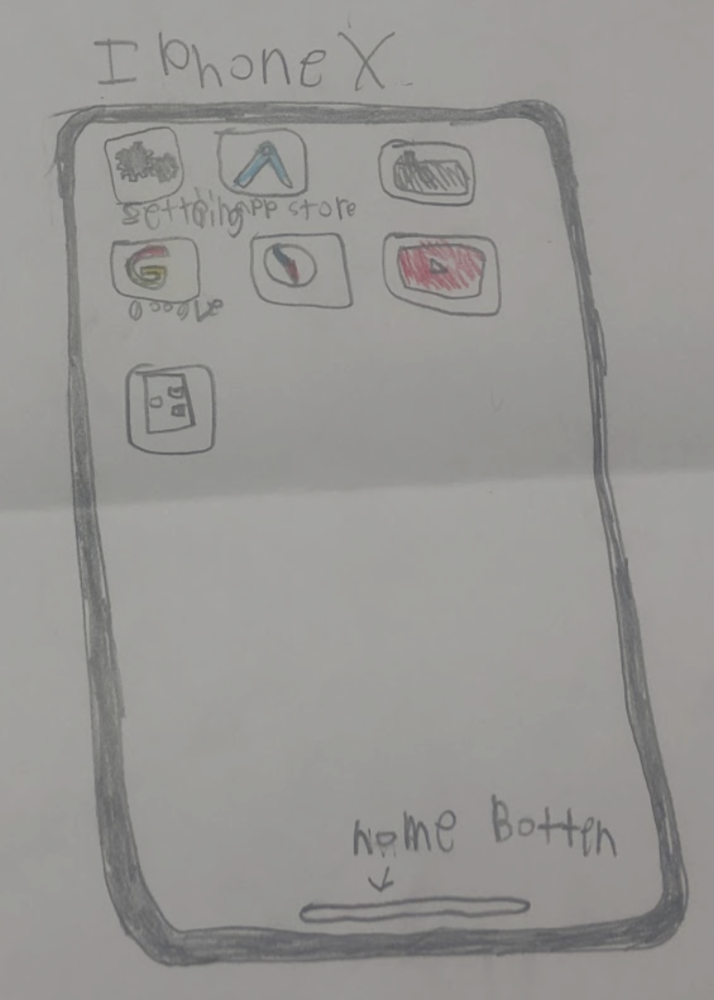 I Phone X
setting App store
G
home Botten